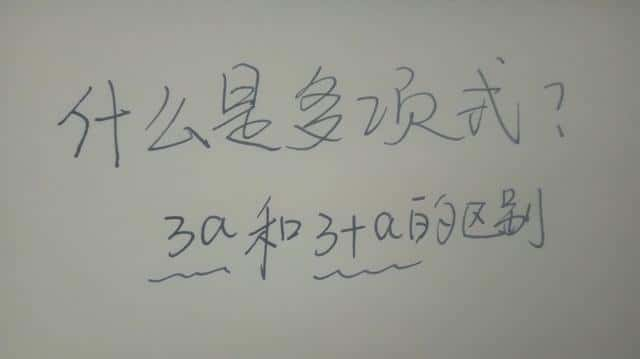 什么是多项式?
3a和3+a的区别